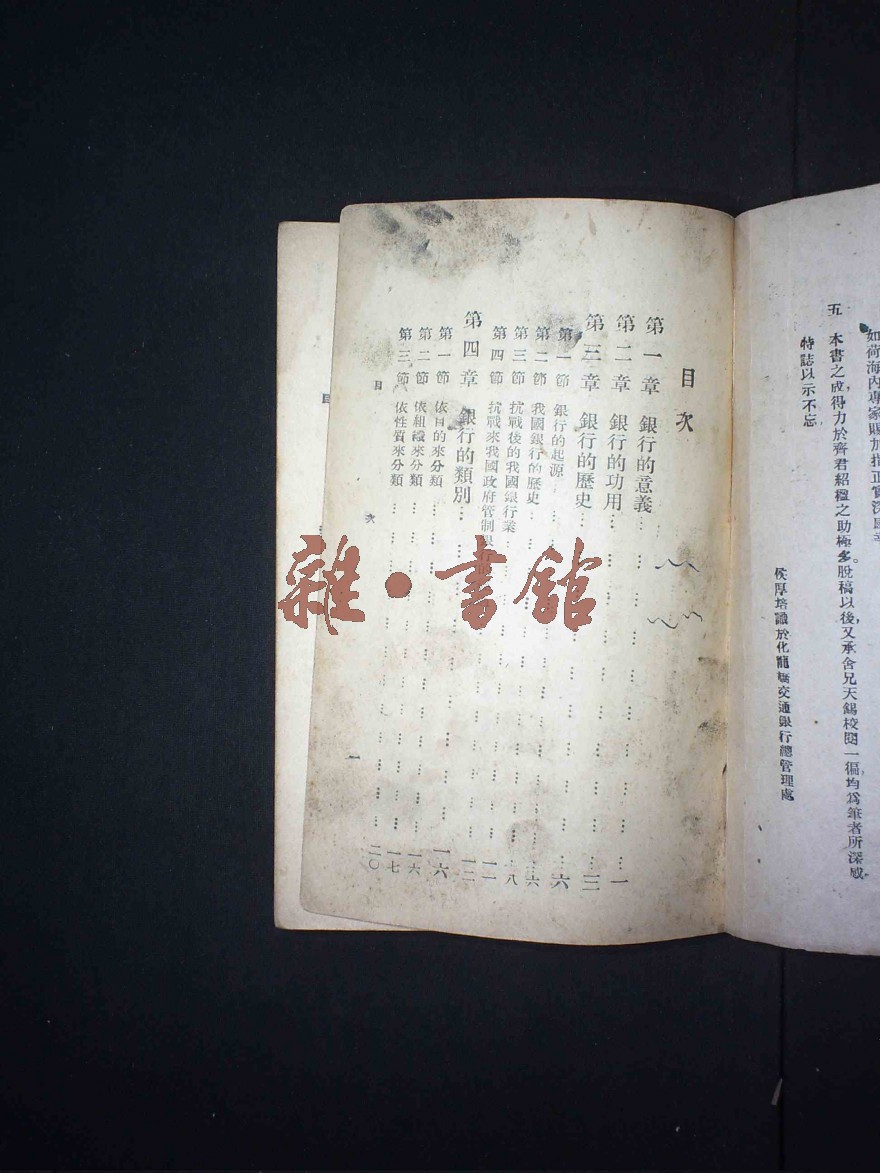 如荷海內專家賜加指正實深
五 本書之成得力於齊君紹楹之助極多。脫稿以後,又承舍兄天錫校閱一徧,均爲筆者所深感
特誌以示不忘
侯厚培識於化龍橋交通銀行總管理處
目次
第一章 銀行的意義 一
第二章 銀行的功用 三
第三章 銀行的歷史 六
第一節 銀行的起源 六
第二節 我國銀行的歷史 六
第三節 抗戰後的我國銀行業 八
第四節 抗戰來我國政府管制銀行 一二
第四章 銀行的類別 一三
第一節 依目的來分類 一六
第二節 依組織來分類 一六
第三節 依性質來分類 一七
二〇
目次
一
目
雜·書館